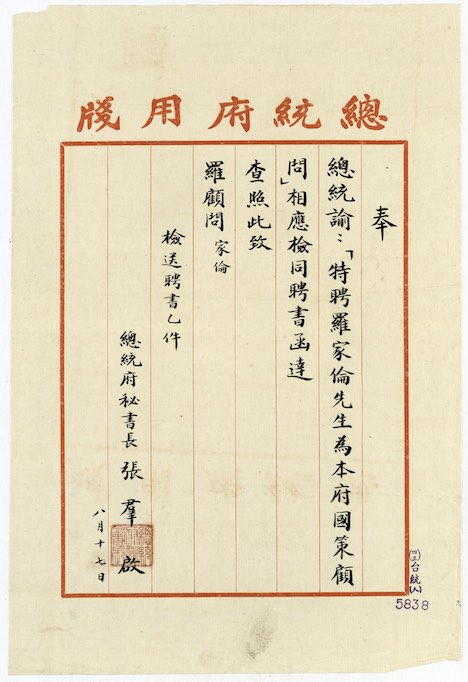 總統府用牋
奉
總統諭：「特聘羅家倫先生為本府國策顧
問」相應檢同聘書函達
查照此致
羅顧問 家倫
檢送聘書乙件
總統府秘書長 張羣 啟
八月十七日
台統(人)
5838